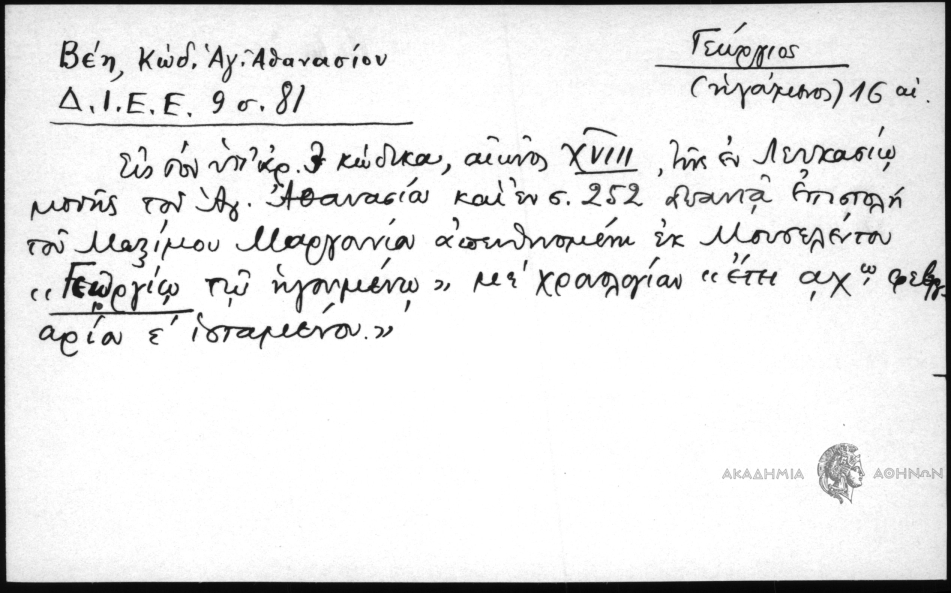 Βέη, Κώδ. Ἁγ. Ἀθανασίου
Δ.Ι.Ε.Ε. 9 σ. 81
Γεώργιος
(ἡγούμενος) 16 αἰ.
Εἰς τὸν ὑπ' ἀρ. 3 κώδικα, αἰῶνος XVIII, τῆς ἐν Λευκασίῳ
μονῆς τοῦ Ἁγ. Ἀθανασίου καὶ ἐν σ. 252 ἀπαντᾷ ἐπιστολὴ
τοῦ Μαξίμου Μαργουνίου ἀπευθυνομένη ἐκ Μουσελέντου
«Γεωργίῳ τῷ ἡγουμένῳ» μὲ χρονολογίαν «ἔτει αχῷ φεβρ
αρίου ε' ἱσταμένου.»
ΑΚΑΔΗΜΙΑ ΑΘΗΝΩΝ